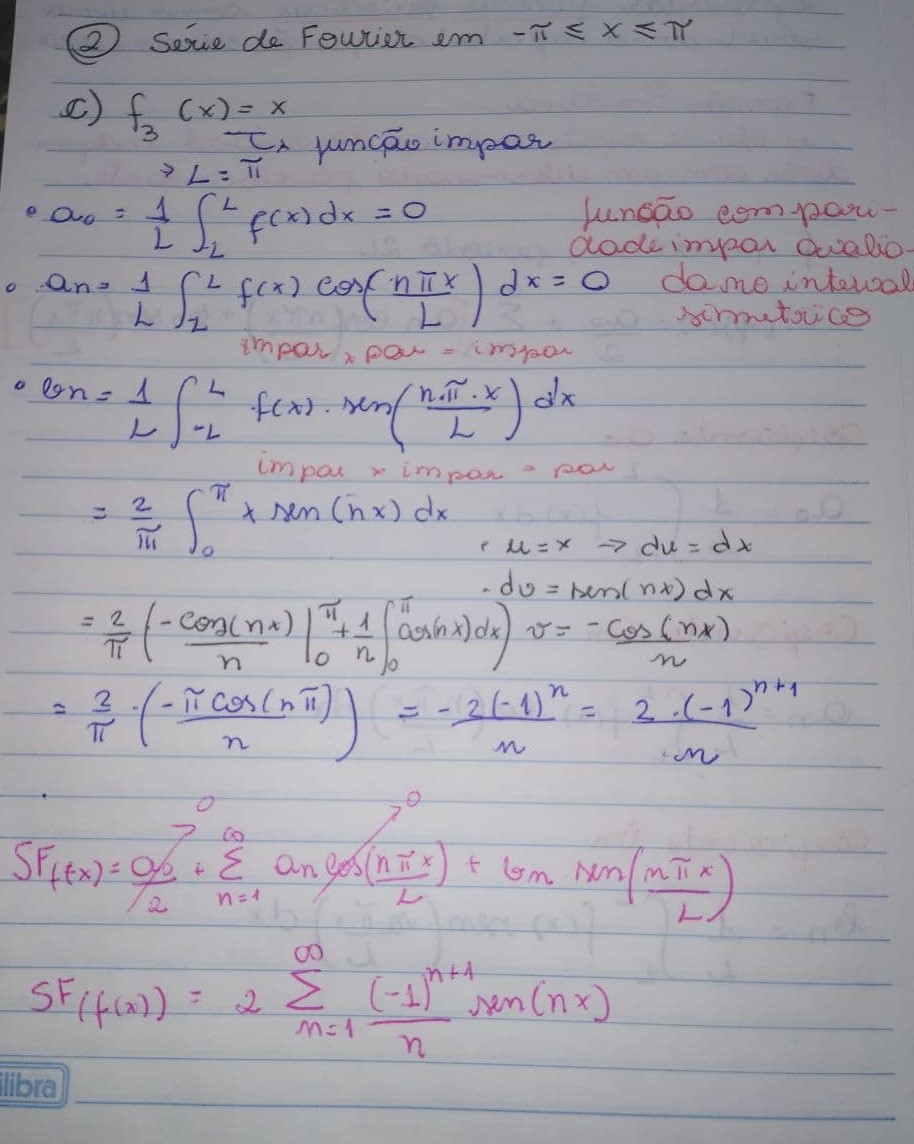 ② Série de Fourier em -π ≤ x ≤ π
c) f₃ (x) = x
↳ função impar
→ L = π
• a₀ = 1/L ∫_L^L f(x) dx = 0 função com pari-
dade impar avalia-
• an = 1/L ∫_L^L f(x) cos(nπx/L) dx = 0 da no interval
simetrico
impar x par = impar
• bn = 1/L ∫_-L^L f(x) . sen(n.π.x/L) dx
impar x impar = par
= 2/π ∫_0^π x sen(nx) dx
• u = x → du = dx
. dv = sen(nx) dx
= 2/π (-cos(nx)/n |_0^π + 1/n ∫_0^π cos(nx) dx) v = -cos(nx)/n
= 2/π . (-π cos(nπ)/n) = -2(-1)^n/n = 2.(-1)^{n+1}/n
0 0
SF f(x) = a₀/2 + Σ_{n=1}^∞ an cos(nπx/L) + bn sen(nπx/L)
SF(f(x)) = 2 Σ_{n=1}^∞ (-1)^{n+1}/n sen(nx)
ilibra